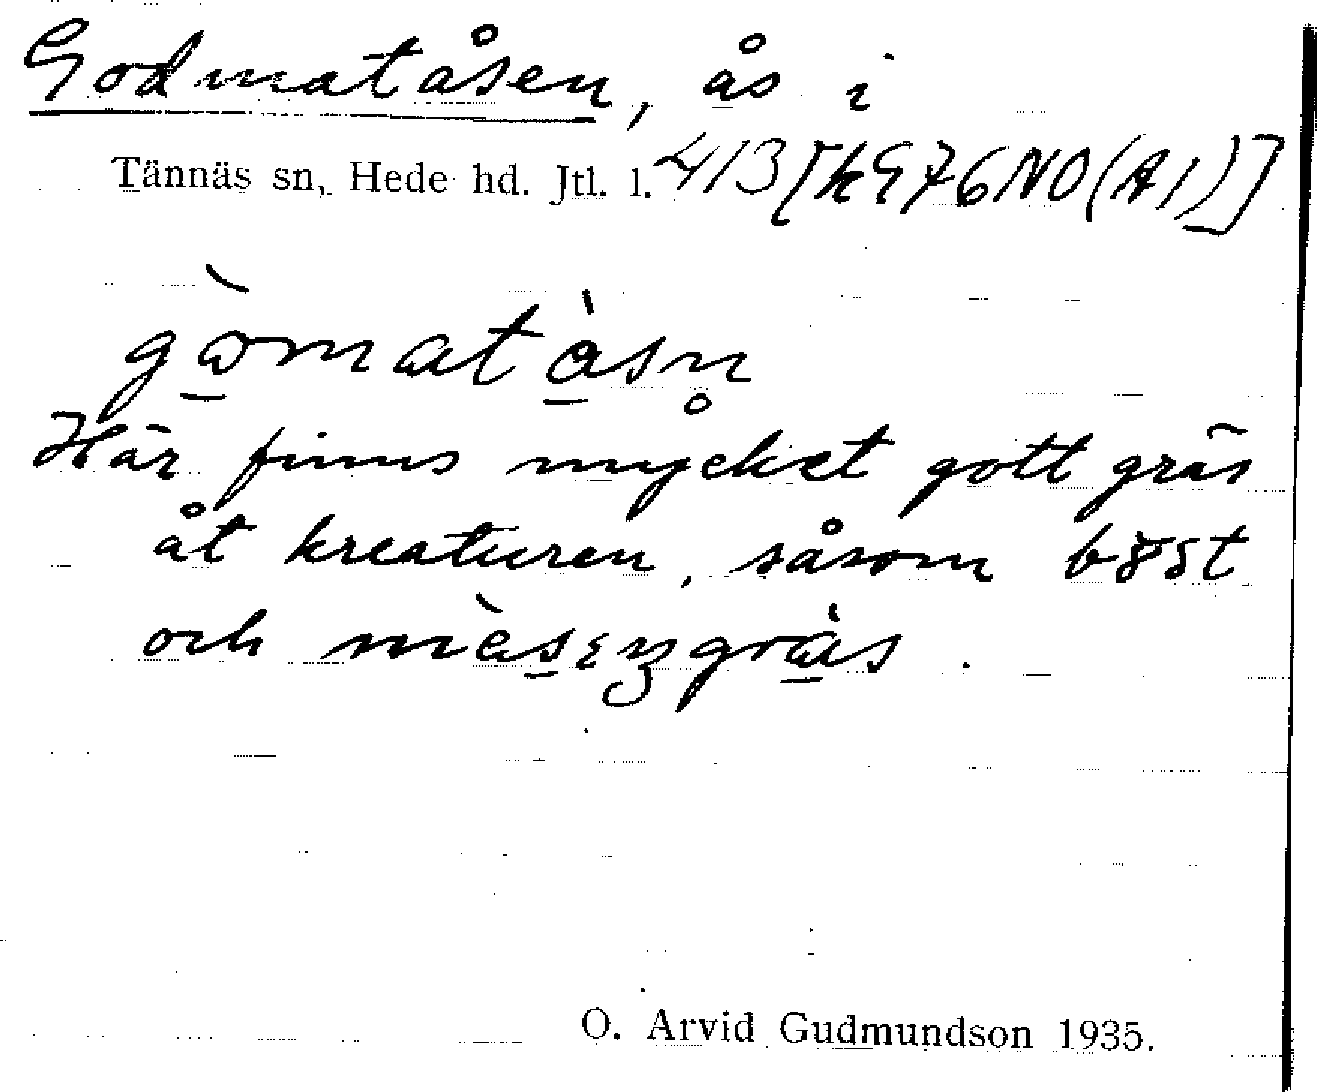 Godmatåsen, ås i
Tännäs sn, Hede hd. Jtl. l. 413 [kG76NO(A1)]
gòmatàsn̥
Här finns mycket gott gräs
åt kreaturen, såsom
och
O. Arvid Gudmundson 1935.